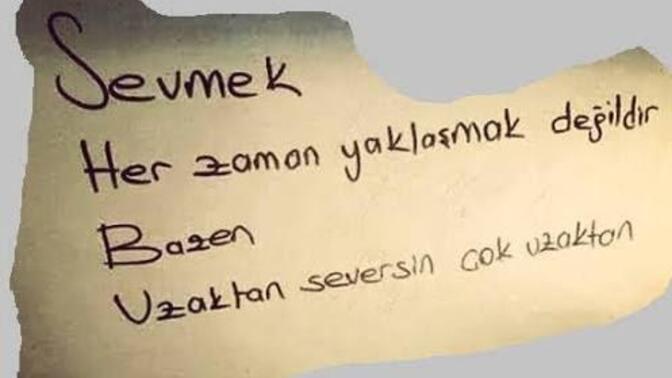 Sevmek
Her zaman yaklaşmak değildir
Bazen
Uzaktan seversin çok uzaktan